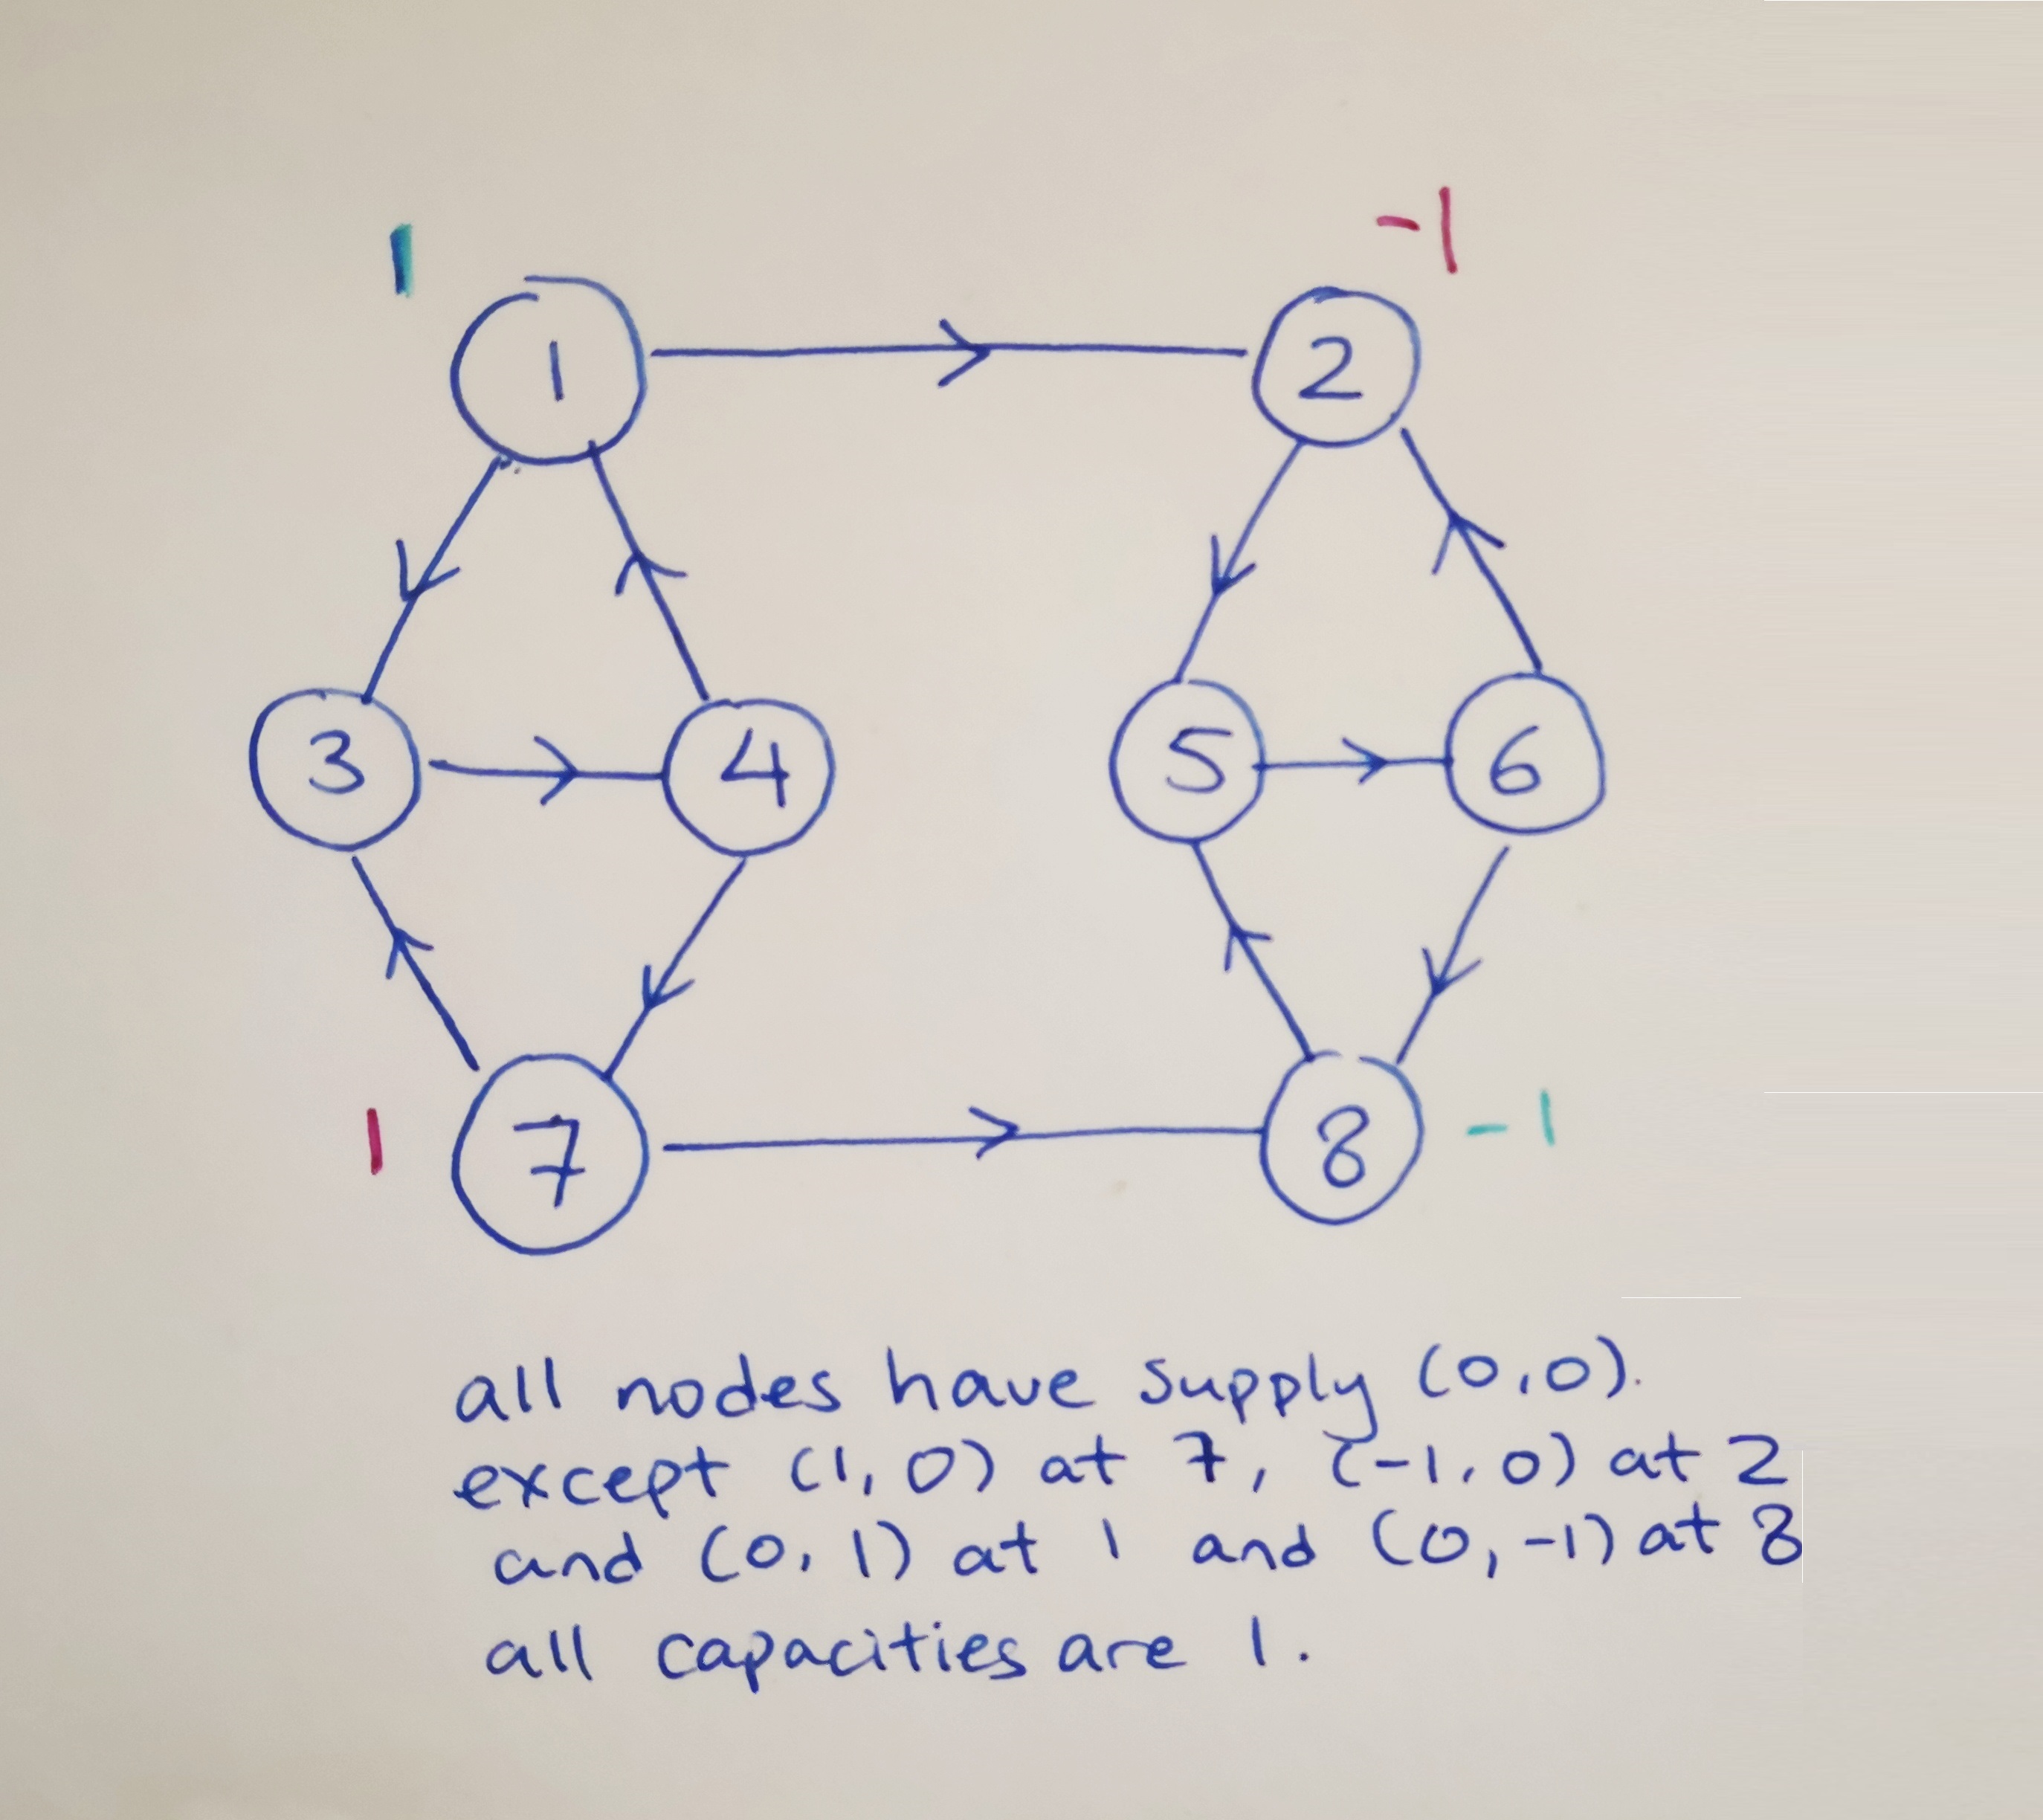 1
-1
1
2
3
4
5
6
1
7
8
-1
all nodes have supply (0,0).
except (1,0) at 7, (-1,0) at 2
and (0,1) at 1 and (0,-1) at 8
all capacities are 1.